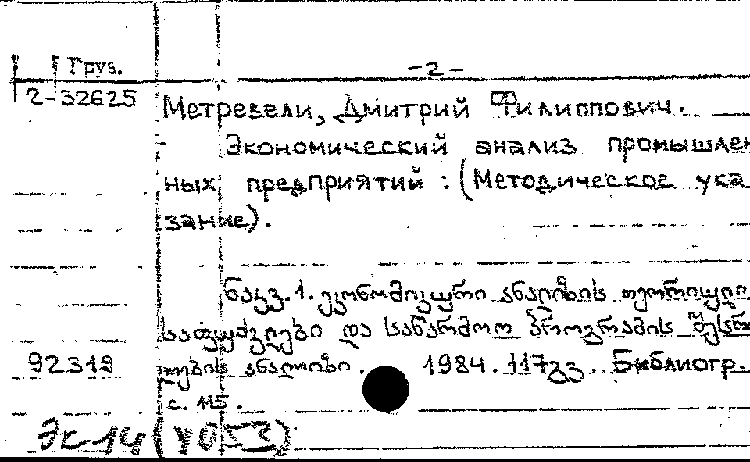 Груз. -2-
2-32625 Метревели, Дмитрий Филиппович.
Экономический анализ промышлен
ных предприятий : (Методическое ука
зание).
ნაკვ. 1. ეკონომიკური ანალიზის თეორიული
საფუძვლები და საწარმოო პროგრამის შესრ
92312 ულების ანალიზი. 1984. 117გვ. Библиогр.
с. 115.
Эк14(